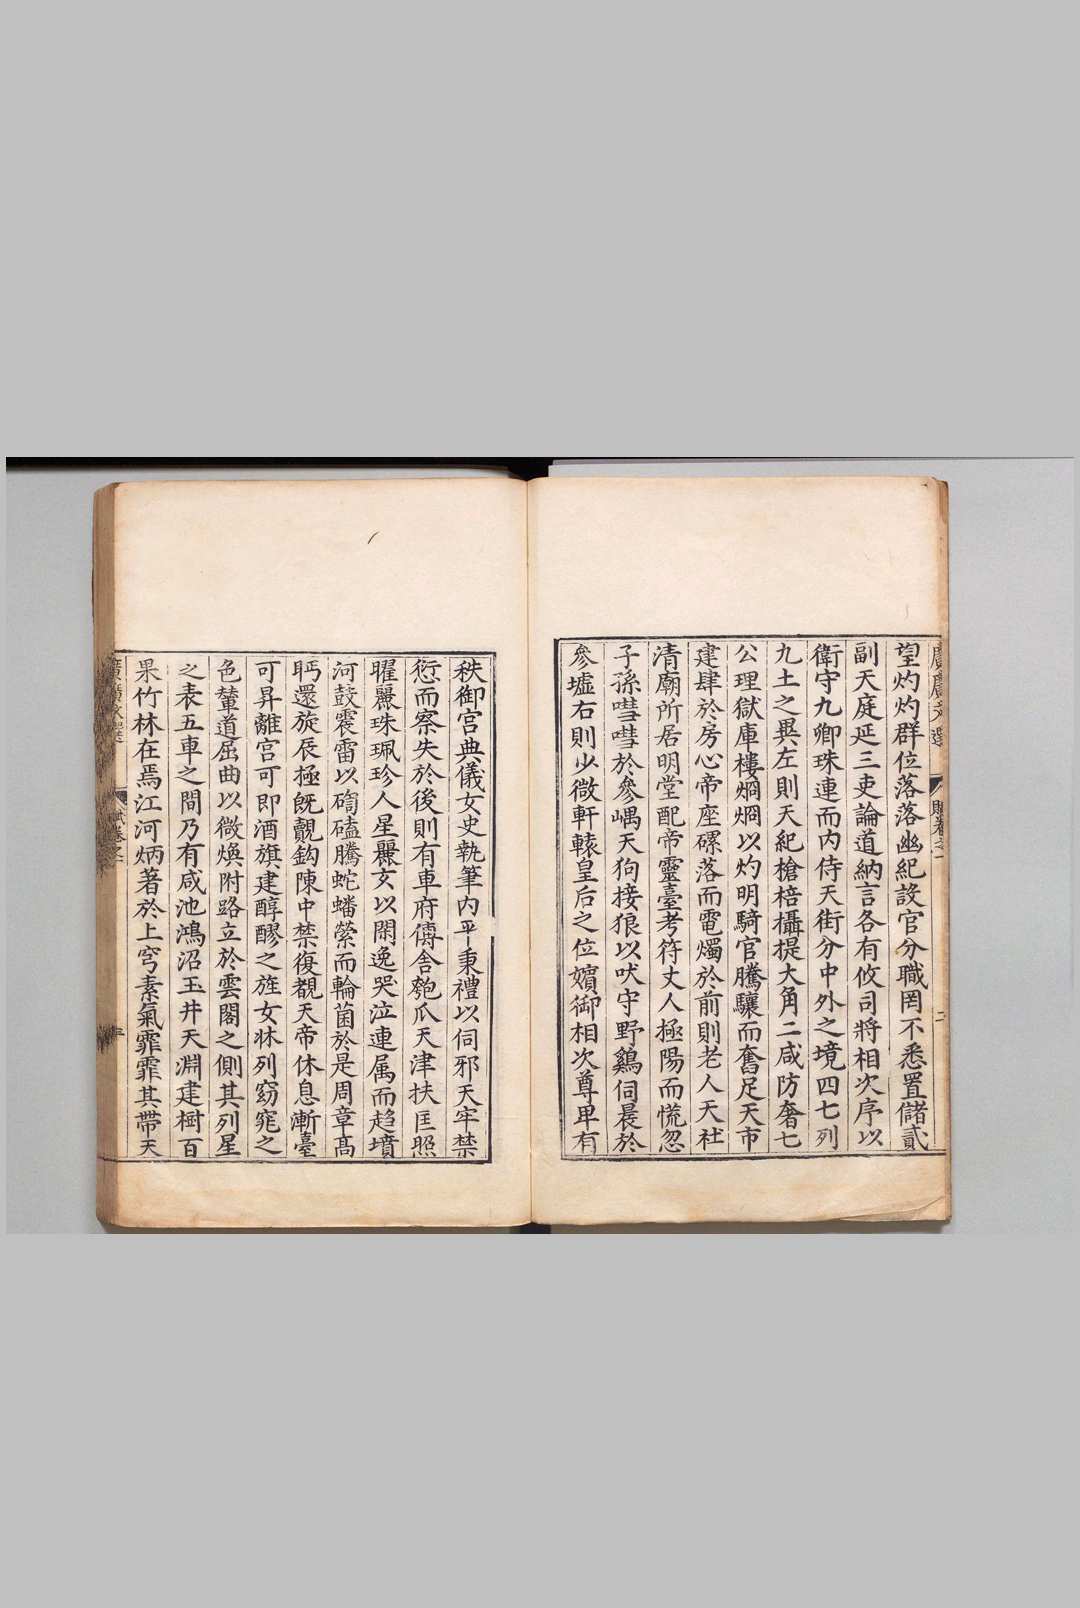 廣廣文選 賦卷之一 二
望灼灼群位落落幽紀設官分職罔不悉置儲貳
副天庭延三吏論道納言各有攸司將相次序以
衛守九卿珠連而內侍天街分中外之境四七列
九土之異左則天紀槍棓攝提大角二咸防奢七
公理獄庫樓烱烱以灼明騎官騰驤而奮足天市
建肆於房心帝座磥落而電燭於前則老人天社
清廟所居明堂配帝靈臺考符丈人極陽而慌忽
子孫嘒嘒於參嵎天狗接狼以吠守野鷄伺晨於
參墟右則少微軒轅皇后之位嬪御相次尊卑有
秩御宮典儀女史執筆內平秉禮以伺邪天牢禁
愆而察失於後則有車府傳舍匏瓜天津扶匡照
曜麗珠珮珍人星麗玄以閑逸哭泣連属而趋墳
河鼓震雷以磤磕騰蛇蟠縈而輪菌於是周章髙
眄還旋辰極旣覿鈎陳中禁復覩天帝休息漸臺
可昇離宮可即酒旗建醇醪之旌女牀列窈窕之
色輦道屈曲以微煥附路立於雲閣之側其列星
之表五車之間乃有咸池鴻沼玉井天淵建樹百
果竹林在焉江河炳著於上穹素氣霏霏其帶天
廣廣文選 賦卷之一 三